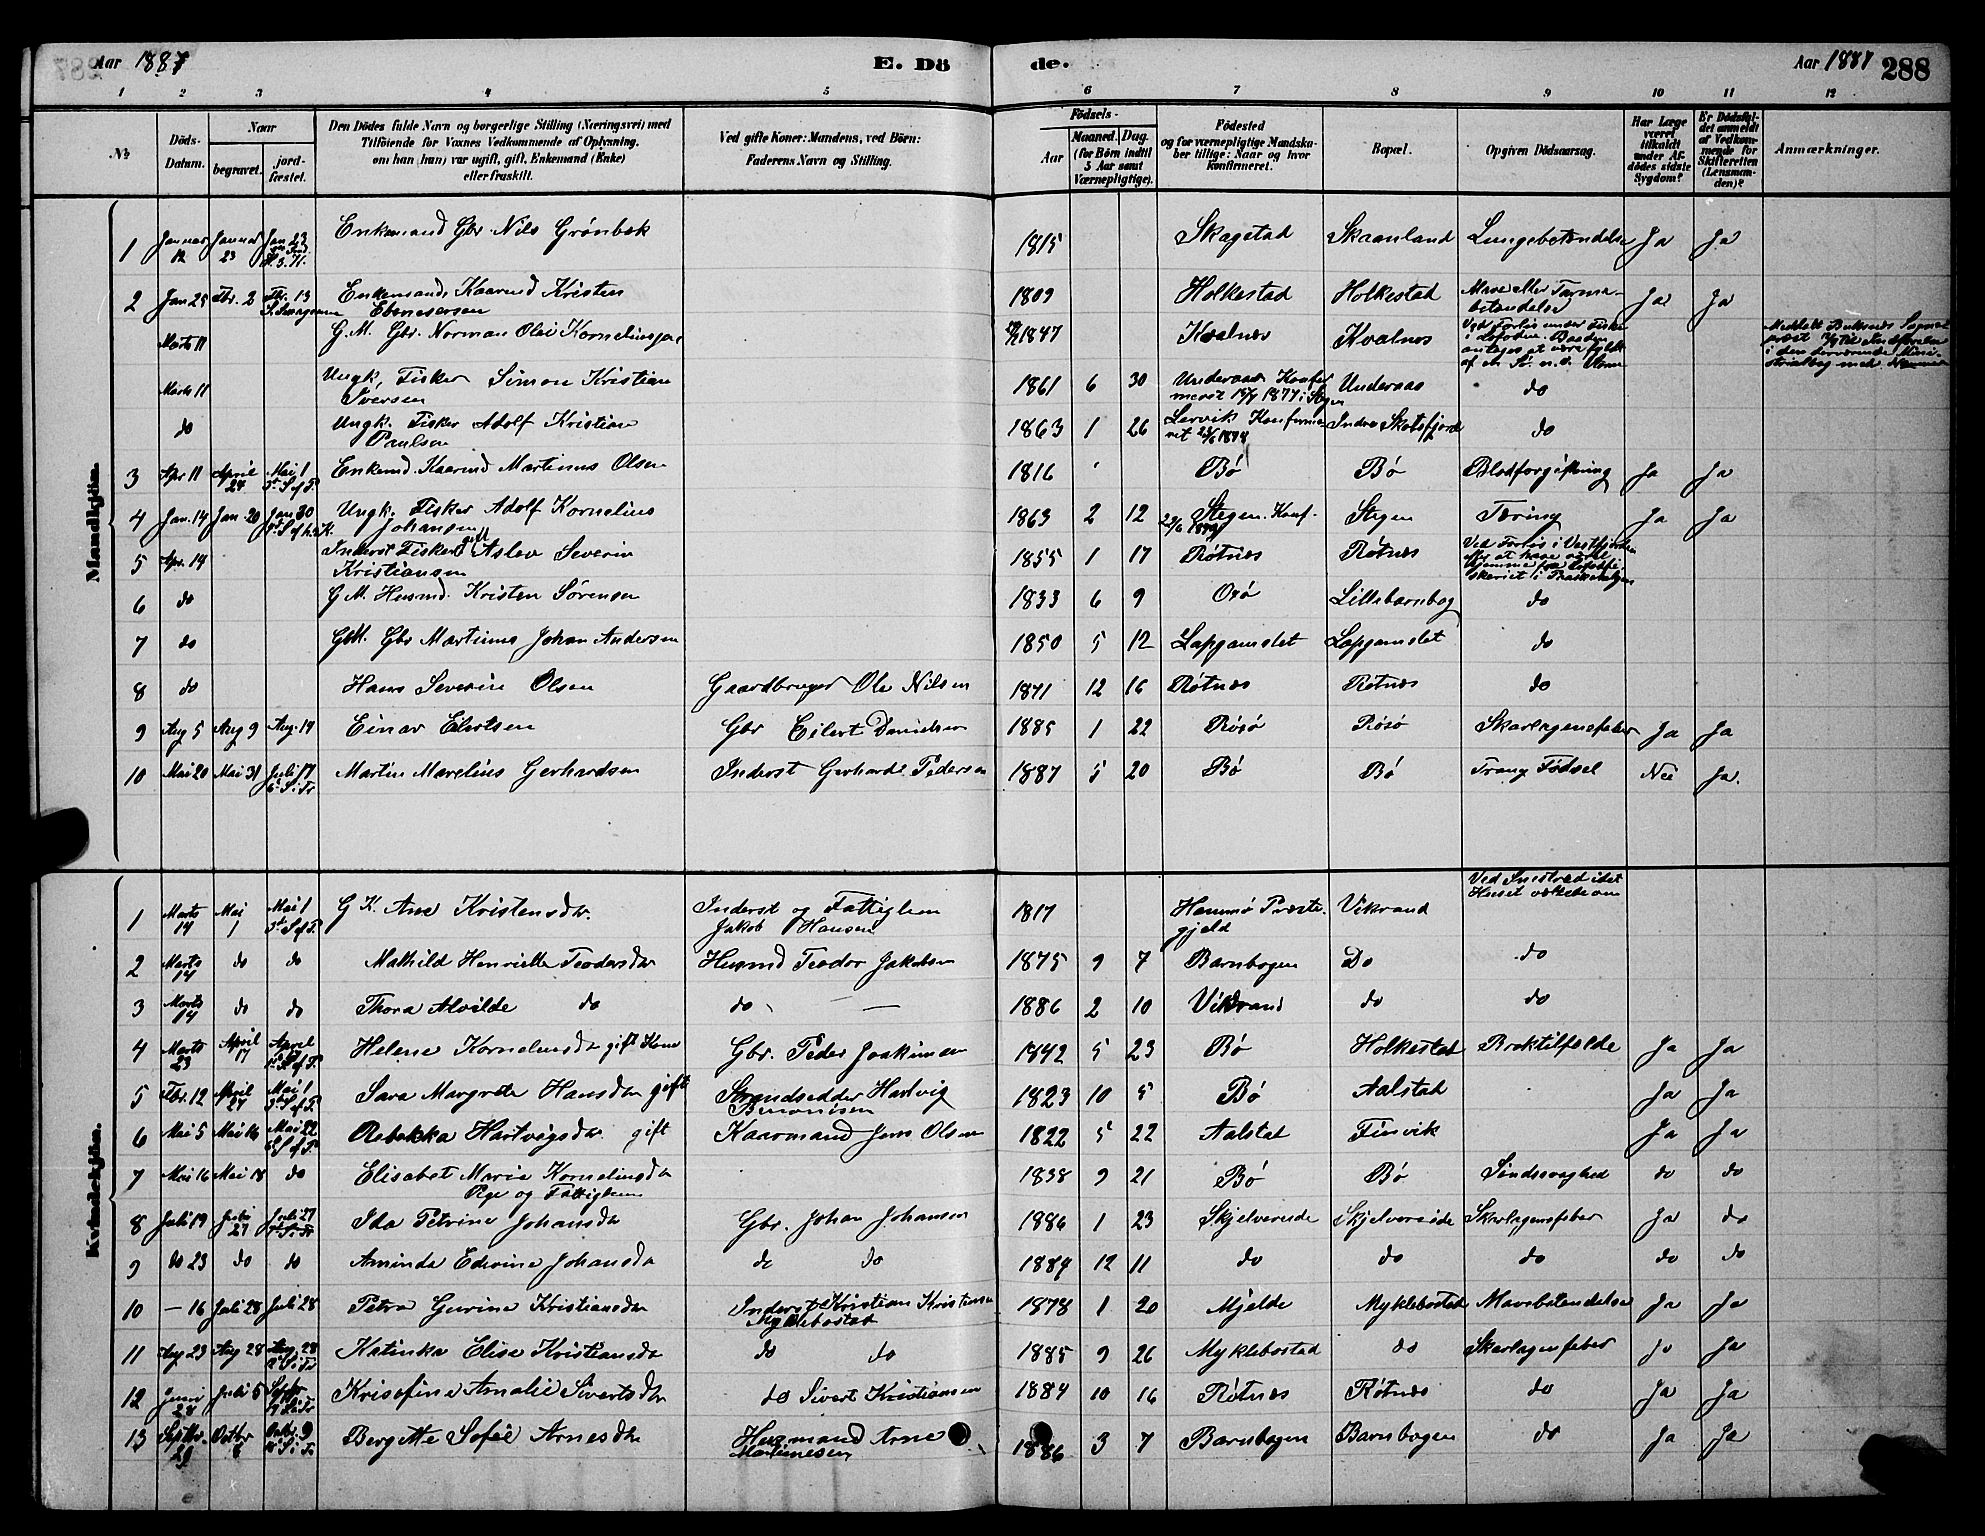 Aar 1887 E. Dö de. Aar 1887 288
1 2 3 4 5 6 7 8 9 10 11 12
No. Döds-Datum. Naar begravet. jordfæstet. Den Dödes fulde Navn og borgerlige Stilling (Næringsvei) med Tilföiende for Voxnes Vedkommende af Oplysning, om han (hun) var ugift, gift, Enkemand (Enke) eller fraskilt. Ved gifte Koner: Mandens, ved Börn: Faderens Navn og Stilling. Födsels- Aar Maaned. Dag. (for Börn indtil 5 Aar samt Værnepligtige). Födested og for værnepligtige Mandskaber tillige: Naar og hvor konfirmeret. Bopæl. Opgiven Dödsaarsag. Har Læge været tilkaldt under Afdödes sidste Sygdom? Er Dödsfaldet anmeldt af Vedkommende for Skifteretten (Lensmanden)? Anmærkninger.
Mandkjön.
1 Januar 12 Januar 23 Jan 23 Enkemand Gbr. Nils Grönbek 1815 Skagstad Skaanland Lungebetændelse Ja Ja
2 Jan 25 Fbr. 2 Fbr. 13 Enkemand Kaarmd Kristen Ebenesersen 1809 Holkestad Holkestad Mave eller Tarmbetændelse Ja Ja
Marts 11 G.M. Gbr. Norman Olai Korneliussen 1847 Kvalnæs Kvalnes Ved Forlis under Fiske i Lofoten. Baaden antages at være fyldt af en Sø.
Marts 11 Ungk. Fisker Simon Kristian Iversen 1861 6 30 Underaas Konfirmeret 1877 i Stegen Underaas do
do Ungk. Fisker Adolf Kristian Paulsen 1863 1 26 Lervik Konfirmeret 1878 Indre Skotsfjord do
3 Apr 11 April 24 Mai 1 3die S. ef. P. Enkemd. Kaarmd Martinus Olsen 1816 Bö Bö Blodforgiftning Ja Ja
4 Jan. 14 Jan 20 Jan 30 Ungk. Fisker Adolf Kornelius Johansen 1863 2 12 Stegen. Konf. Stegen Tæring Ja Ja
5 Apr. 14 Inderst Fisker gift Aslev Severin Kristiansen 1855 1 17 Røtnes Røtnes Ved Forlis i Vestfjorden
6 do G.M. Husmd. Kristen Sørensen 1833 6 9 Lillebarnbog do
7 do GM. Gbr Martinus Johan Andersen 1850 5 12 Lapgamslet Lapgamslet do
8 do Hans Severin Olsen Gaardbruger Ole Nilsen 1871 12 16 Røtnes Røtnes do
9 Aug 5 Aug 9 Aug. 14 Einar Eilertsen Gbr Eilert Danielsen 1885 1 22 Røsø Røsø Skarlagensfeber Ja Ja
10 Mai 20 Mai 31 Juli 17 Martin Marelius Gerhardsen Inderst Gerhard Pedersen 1887 5 20 Bö Bö Trang Födsel Nei Ja.
Kvindekjön.
1 Marts 14 Mai 1 Mai 1 3die S. ef. P. G K. Ane Kristensdtr. Inderst og Fattiglem Jakob Hansen 1817 Hammø Præstegjeld Vikrand Ved Sneskred idet Huset væltede om
2 Marts 14 do do Mathild Henriette Teodorsdtr Husmd Teodor Jakobsen 1875 9 7 Barnbogen Do do
3 Marts 14 do do Thora Alvilde do do 1886 2 10 Vikrand do do
4 Marts 23 April 17 April 17 Helene Korneliusdtr gift Kone Gbr. Peder Joakimsen 1842 5 23 Bö Holkestad Braktilfælde Ja Ja
5 Fbr. 12 April 24 Mai 1 3die S. ef. P. Sara Margrete Hansdtr gift Strandsedder Hartvig Benonisen 1823 10 5 Bö Aalstad Ja Ja
6 Mai 5 Mai 16 Mai 22 Rebekka Hartvigsdtr gift Kaarmand Jens Olsen 1822 5 22 Aalstad Finvik Ja Ja
7 Mai 16 Mai 18 do Elisabet Maria Korneliusdtr Pige og Fattiglem 1838 9 21 Bö Bö Sindssvaghed do do
8 Juli 19 Juli 27 Juli 27 Ida Petrine Johansdtr Gbr. Johan Johansen 1886 1 23 Skjelvereide Skjelvereide Skarlagensfeber Ja do
9 do 23 do do Aminda Edvine Johansdtr do do 1884 12 11 do do do do do
10 — 16 Juli 28 Juli 28 Petra Gurine Kristiansdtr Inderst Kristian Kristensen Myklebostad 1878 1 20 Mjelde Myklebostad Mavebetændelse Ja Ja
11 Aug 23 Aug 28 Aug. 28 Katinka Elise Kristiansdtr do do 1885 9 26 Myklebostad do Skarlagensfeber Ja Ja
12 Juni 28 Juli 5 Krisofine Amalie Sivertsdtr do Sivert Kristiansen 1884 10 16 Røtnes Røtnes do Ja Ja
13 Septbr. 29 Octbr 8 Octbr. 9 Bergitte Sofie Arnesdtr Husmand Arne Martinesen 1886 3 7 Barnbogen Barnbogen do Ja Ja